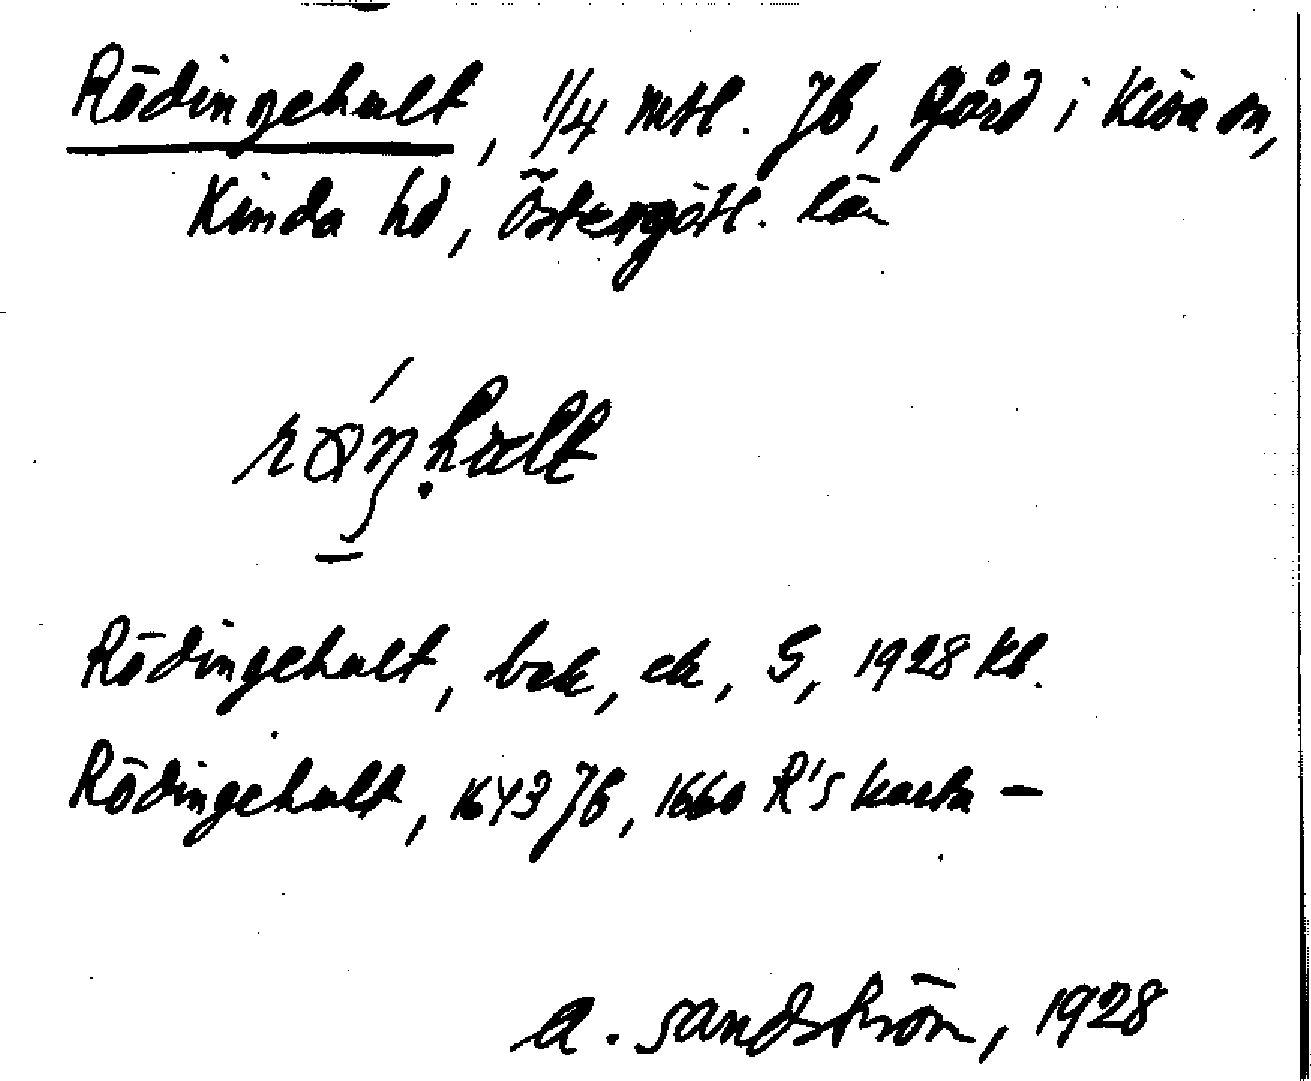 Rödingehult, 1/4 mtl. Jb, Gård i Kisa sn,
Kinda hd, Östergötl. län
Rödingehult, bok, ek, S, 1928 kb.
Rödingehult, 1643 Jb, 1660 R's karta –
A. Sandström, 1928